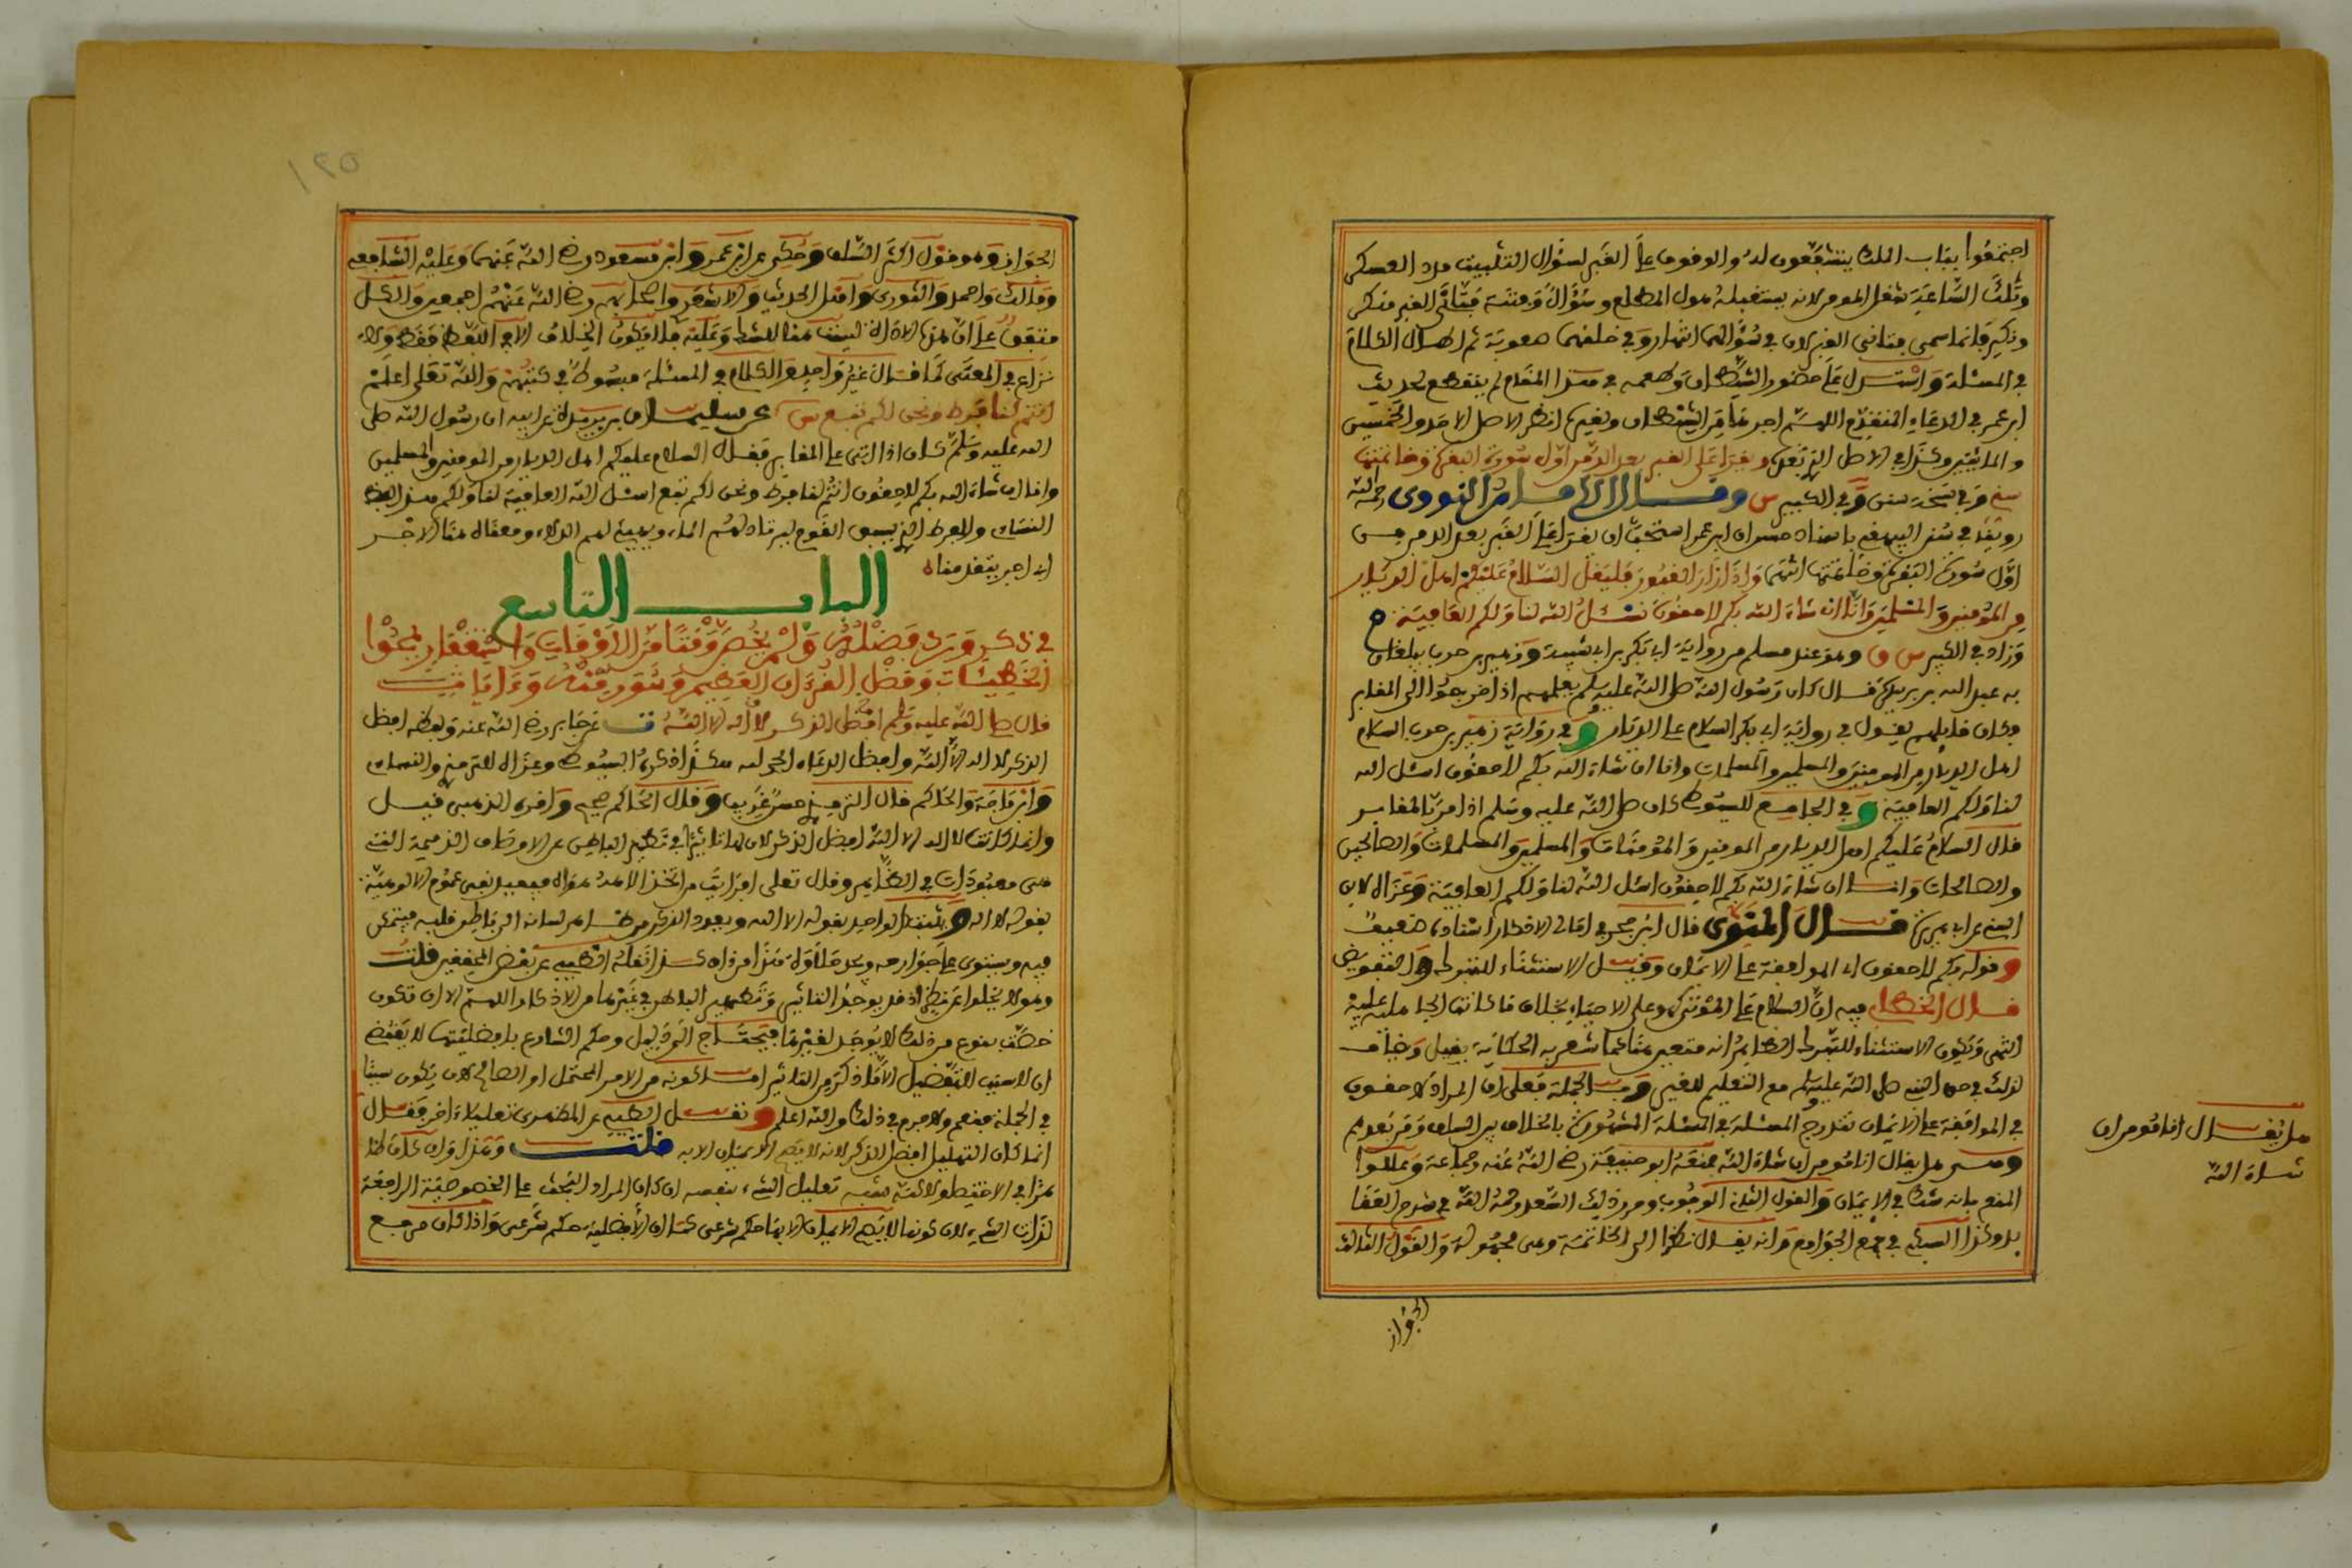 اجتمعوا بباب الملك يتشفعون له والوقوف على القبر لسؤال التثبيت مدد العسكر
وتلك الساعة شغل المومن لانه يستقبله هول المطلع وسؤال وفتنة فتاني القبر منكر
ونكير وانما سمي فتاني القبر لان في سؤالهما انتهارا وفي خلقهما صعوبة ثم اطال الكلام
في المسئلة واستدل على حضور الشيطان وطمعه في هذا المقام لم ينقطع لحديث
ابن عمر في الدعاء المتقدم اللهم اجرها من الشيطان وبغيره انظر الاصل الاحد والخمسين
والمائتين وكذا في الاصل الذي بعده ويقرا على القبر بعد الدفن اول سورة البقرة وخاتمتها
سني وفي نسخة سنن وفي الكبير س وقال الامام النووي رحمه الله
روينا في سنن البيهقي باسناد حسن ان ابن عمر استحب ان يقرا على القبر بعد الدفن
اول سورة البقرة وخاتمتها انتهى واذا زار القبور فليقل السلام عليكم اهل الديار
من المؤمنين والمسلمين وانا ان شاء الله بكم لاحقون نسئل الله لنا ولكم العافية م
وزاد في الكبير س ق وهو عند مسلم من رواية ابي بكر بن ابي شيبة وزهير بن حرب
عبد الله بن بريدة قال كان رسول الله صلى الله عليه وسلم يعلمهم اذا خرجوا الى المقابر
وكان قايلهم يقول في رواية ابي بكر السلام على الديار وفي رواية زهير بن حرب السلام
اهل الديار من المومنين والمسلمين والمسلمات وانا ان شاء الله بكم لاحقون اسئل الله
لنا ولكم العافية وفي الجامع للسيوطي كان صلى الله عليه وسلم اذا مر بالمقابر
قال السلام عليكم اهل الديار من المومنين والمؤمنات والمسلمين والمسلمات والصالحين
والصالحات وانا ان شاء الله بكم لاحقون اسئل الله لنا ولكم العافية وعزاه لابن
السني عن ابي هريرة قال المنوي قال ابن حجر في امالي الاذكار اسناده ضعيف
وقوله بكم لاحقون اي الموافقة على الايمان وقيل الاستثناء للتبرك والتفويض
قال الخطابي فيه ان السلام على الموتى كهو على الاحياء بخلاف ما كانت الجاهلية عليه
انتهى وتكون الاستثناء للتبرك الظاهر انه متعين هنا كما شعر به الحكاية بقيل
لذلك في حق النبي صلى الله عليه وسلم مع التعليم للغير وبالجملة فعلى ان المراد لاحقون
في الموافقة على الايمان تندرج المسئلة في المسئلة المشهورة بالخلاف بين السلف ومن بعدهم
وهي هل يقال انا مومن ان شاء الله منعه ابو حنيفة رضي الله عنه وجماعة وعللوا
المنع بانه شك في الايمان والقول الثاني الوجوب ومرد ذلك السعد رحمه الله في شرح العقايد
بل وكذا السبكي في جمع الجوامع وانه يقال نظرا الى الخاتمة وهي مجهولة والقول الثالث
الجواز
هل يقال انا مومن ان
شاء الله
١٢٥
الجواز وهو قول اكثر السلف وحكي عن ابن عمر وابن مسعود رضي الله عنهما وعليه الشافعي
ومالك واحمد والثوري واهل الحديث والاشعري واصحابهم رضي الله عنهم اجمعين والكل
متفق على ان هذه الاداة ليست هنا للشك وعليه فلا يكون الخلاف الا في اللفظ فقط ولا
نزاع في المعنى كما قال غير واحد والكلام في المسئلة مبسوط في كتبهم والله تعلى اعلم
انتم لنا فرط ونحن لكم تبع س عن سليمان بن بريدة عن ابيه ان رسول الله صلى
الله عليه وسلم كان اذا اتى على المقابر فقال السلام عليكم اهل الديار من المومنين والمسلمين
وانا ان شاء الله بكم لاحقون انتم لنا فرط ونحن لكم تبع اسئل الله العافية لنا ولكم هذا لفظ
النساي والفرط الذي يسبق القوم ليرتاد لهم الماء ويهيئ لهم الدلاء ومعناه هنا الاجر
اي اجر يتقدمنا
الباب التاسع
في ذكر ورد فضله ولم يخص وقتا من الاوقات واستغفار يمحوا
الخطيئات وفضل القرءان العظيم وسور منه وءايات
قال صلى الله عليه وسلم افضل الذكر لا اله الا الله ت عن جابر رضي الله عنه ولفظه افضل
الذكر لا اله الا الله وافضل الدعاء الحمد لله هكذا ذكره السيوطي وعزاه للترمذي والنساي
وابن ماجة والحاكم قال الترمذي حسن غريب وقال الحاكم صحيح واقره الذهبي قيل
وانما كانت لا اله الا الله افضل الذكر لان لها تاثيرا في تطهير الباطن عن الاوصاف الذميمة التي
هي معبودات في الظاهر قال تعلى افرايت من اتخذ الاهه هواه فيفيد نفي عموم الالوهية
بقوله لا اله ويثبت الواحد بقوله الا الله ويعود الذكر من ظاهر لسانه الى باطن قلبه فيتمكن
فيه ويستولي على جوارحه ويجد حلاوة هذا من ذاق كذا نقله الطيبي عن بعض المحققين قلت
وهو لا يخلوا عن نظر اذ قد يوجد التاثير وتطهير الباطن في غيرها من الاذكار اللهم الا ان تكون
خصت بنوع من ذلك لا يوجد لغيرها فيحتاج الى دليل وحكم الشارع بافضليتها لا يقتضي
ان لا سبب للتفضيل الا ما ذكر من التاثير اما كونه من الامر المحتمل او الصالح لان يكون سببا
في الجملة فنعم ولا جرم في ذلك والله اعلم ونقل الطيبي عن المظهري تعليلا اخر فقال
انما كان التهليل افضل الذكر لانه لا يصح الايمان الا به قلت وهذا وان كان ظاهرا